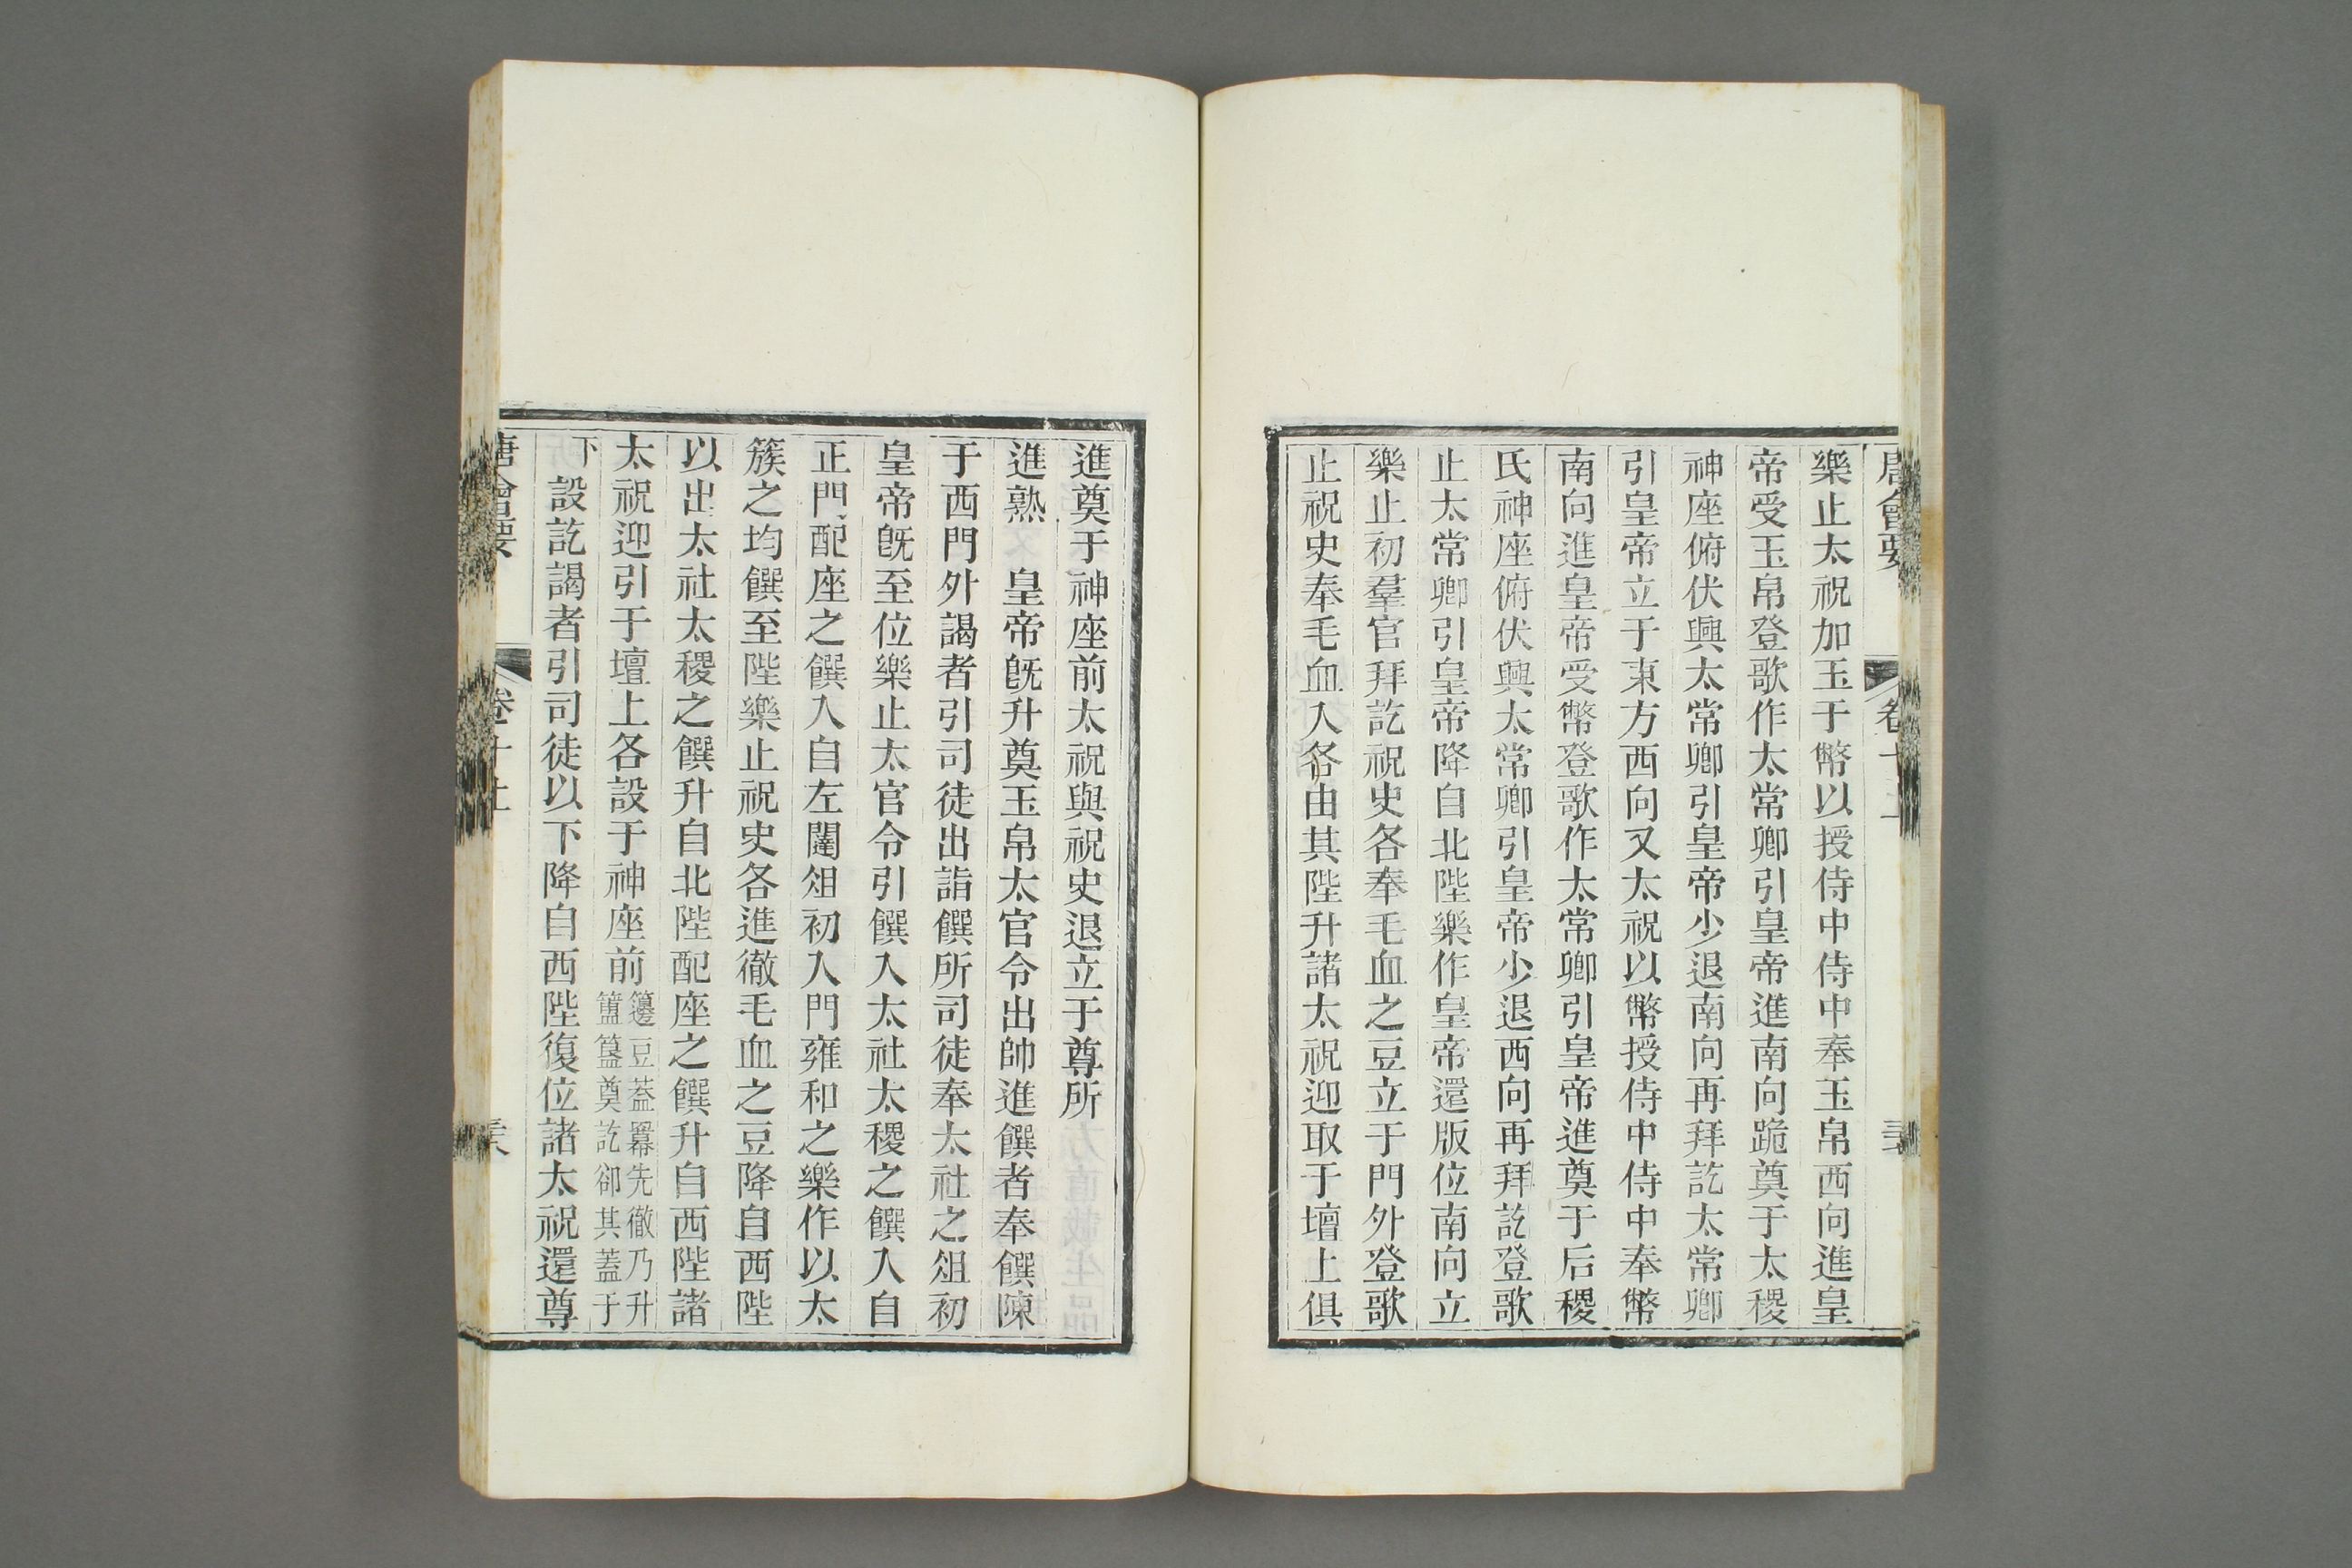 樂止太祝加玉于幣以授侍中侍中奉玉帛西向進皇
帝受玉帛登歌作太常卿引皇帝進南向跪奠于太稷
神座俯伏興太常卿引皇帝少退南向再拜訖太常卿
引皇帝立于東方西向又太祝以幣授侍中侍中奉幣
南向進皇帝受幣登歌作太常卿引皇帝進奠于后稷
氏神座俯伏興太常卿引皇帝少退西向再拜訖登歌
止太常卿引皇帝降自北陛樂作皇帝還版位南向立
樂止初羣官拜訖祝史各奉毛血之豆立于門外登歌
止祝史奉毛血入各由其陛升諸太祝迎取于壇上俱
進奠于神座前太祝與祝史退立于尊所
進熟 皇帝旣升奠玉帛太官令出帥進饌者奉饌陳
于西門外謁者引司徒出詣饌所司徒奉太社之俎初
皇帝旣至位樂止太官令引饌入太社太稷之饌入自
正門配座之饌入自左闥俎初入門雍和之樂作以太
簇之均饌至陛樂止祝史各進徹毛血之豆降自西陛
以出太社太稷之饌升自北陛配座之饌升自西陛諸
太祝迎引于壇上各設于神座前籩豆蓋羃先徹乃升
簠簋奠訖卻其蓋于
下
設訖謁者引司徒以下降自西陛復位諸太祝還尊
唐會要 卷十上